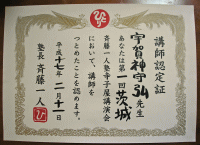 講師認定証
宇賀神守弘先生
あなたは第一回茨城
斉藤一人塾寺子屋講演会
において、講師を
つとめたことを認めます。
平成十七年二月十一日
塾長 斉藤一人